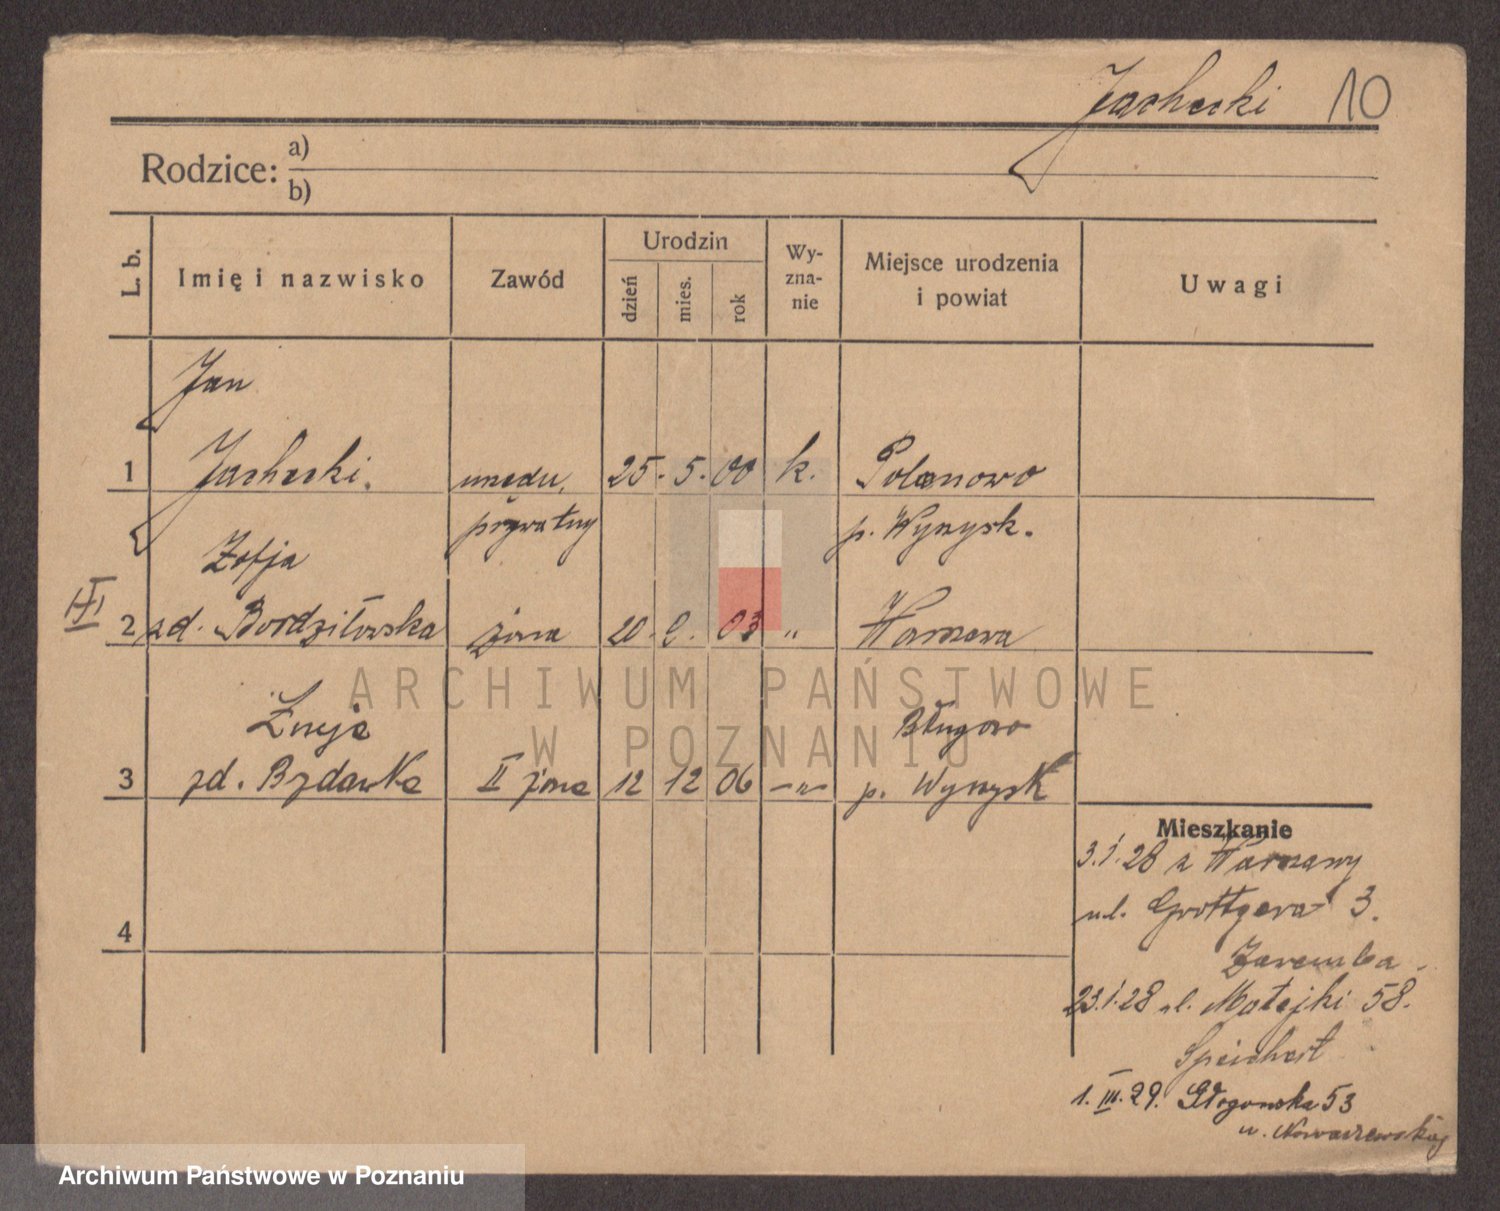 Jachecki 10
Rodzice: a)
b)
L. b. Imię i nazwisko Zawód Urodzin dzień mies. rok Wy-zna-nie Miejsce urodzenia i powiat Uwagi
Jan
1 Jachecki. urzędn. 25. 5. 00 k. Polanowo
prywatny p. Wyrzysk.
Zofja
2 zd. Bordziłowska żona 20. 03 " Warszawa
Łucja Bługowo
3 zd. II żona 12 12 06 -"- p. Wyrzysk
Mieszkanie
3.1.28 z Warszawy
ul. Grottgera 3.
4
Zaremba.
23.1.28 ul. Matejki 58.
Speichert
1. III. 29. Głogowska 53
u. Nowaczewskiej
ARCHIWUM PAŃSTWOWE
W POZNANIU
Archiwum Państwowe w Poznaniu